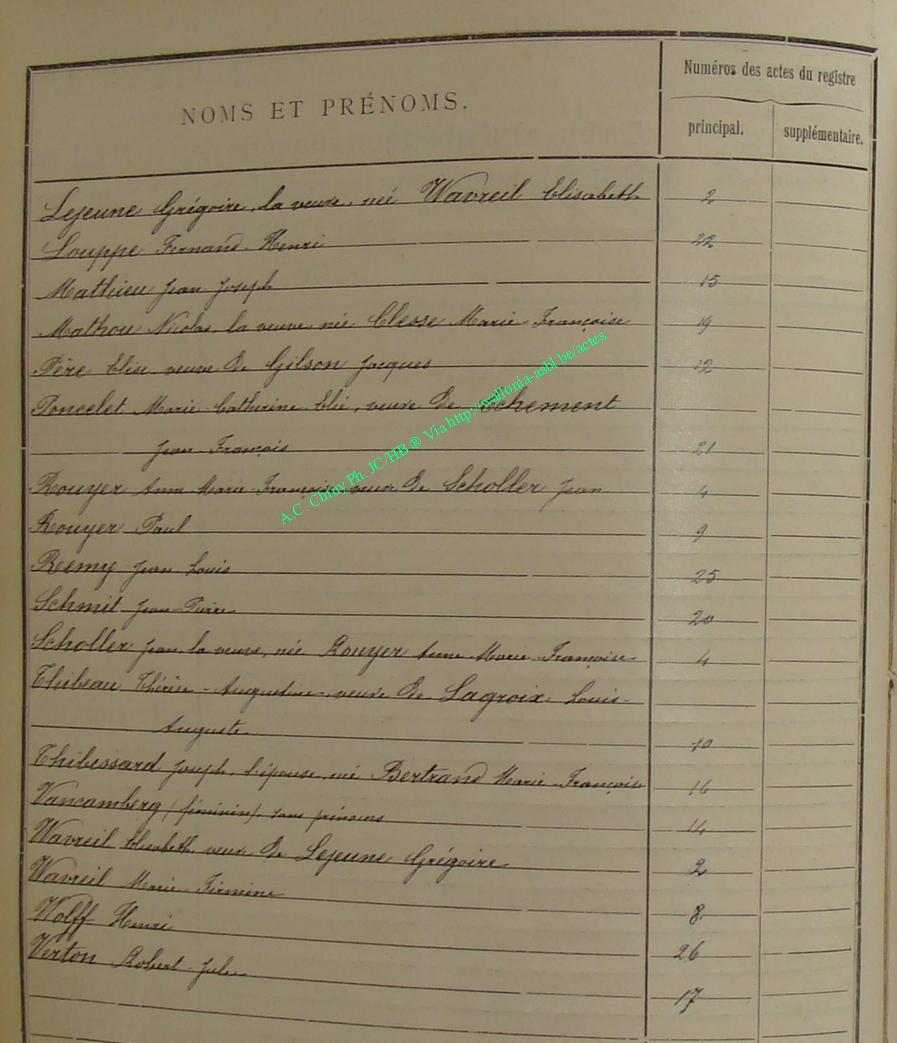 NOMS ET PRÉNOMS.
Numéros des actes du registre
principal.
supplémentaire.
Lejeune Grégoire, la veuve, née Wavreil Elisabeth 2
Louppe Fernand Henri 22
Mathieu Jean Joseph 15
Mathou Nicolas, la veuve née Clesse Marie Françoise 19
Père Elise veuve de Gilson Jacques 12
Poncelet Marie Catherine Elie, veuve de Echement
Jean François 21
Rouyer Anne Marie Françoise veuve de Scholler Jean 4
Rouyer Paul 9
Remy Jean Louis 25
Schmit Jean Pierre 20
Scholler Jean la veuve, née Rouyer Anne Marie Françoise 4
Thibeau Thérèse - Augustine, veuve de Lagroix Louis-
Auguste 10
Thibessard Joseph, l'épouse, née Bertrand Marie Françoise 16
Vancamberg (féminin), sans prénoms 14
Wavreil Elisabeth veuve de Lejeune Grégoire 2
Wavreil Marie Firmine 8
Wolff Henri 26
Verton Robert Jules 17
A.C. Chiny Ph. JC/HB ® Via http://wallonia-asbl.be/actes